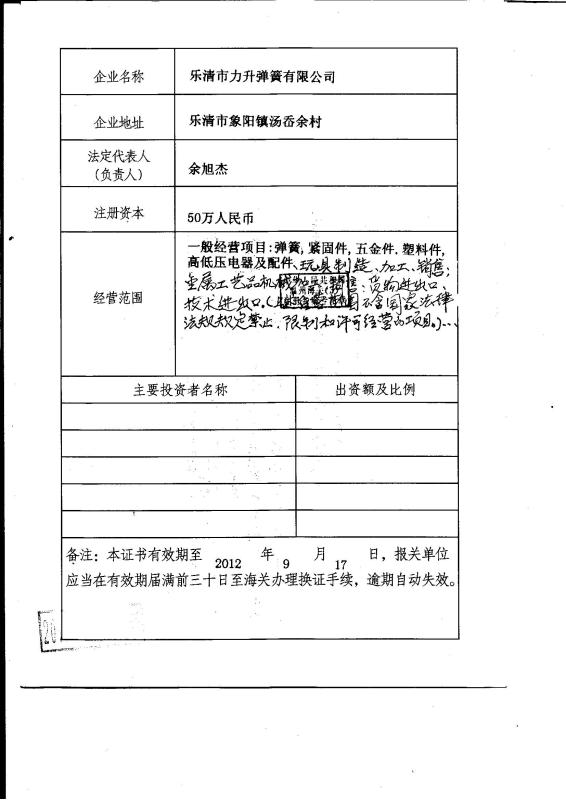 企业名称 乐清市力升弹簧有限公司
企业地址 乐清市象阳镇汤岙余村
法定代表人
(负责人) 余旭杰
注册资本 50万人民币
经营范围
一般经营项目:弹簧,紧固件,五金件,塑料件,
高低压电器及配件、玩具制造、加工、销售;
金属工艺品机械加工、销售;货物进出口、
技术进出口。(上述经营范围不含国家法律
法规规定禁止、限制和许可经营的项目。)...
主要投资者名称 出资额及比例
备注:本证书有效期至 2012 年 9 月 17 日,报关单位
应当在有效期届满前三十日至海关办理换证手续,逾期自动失效。
20